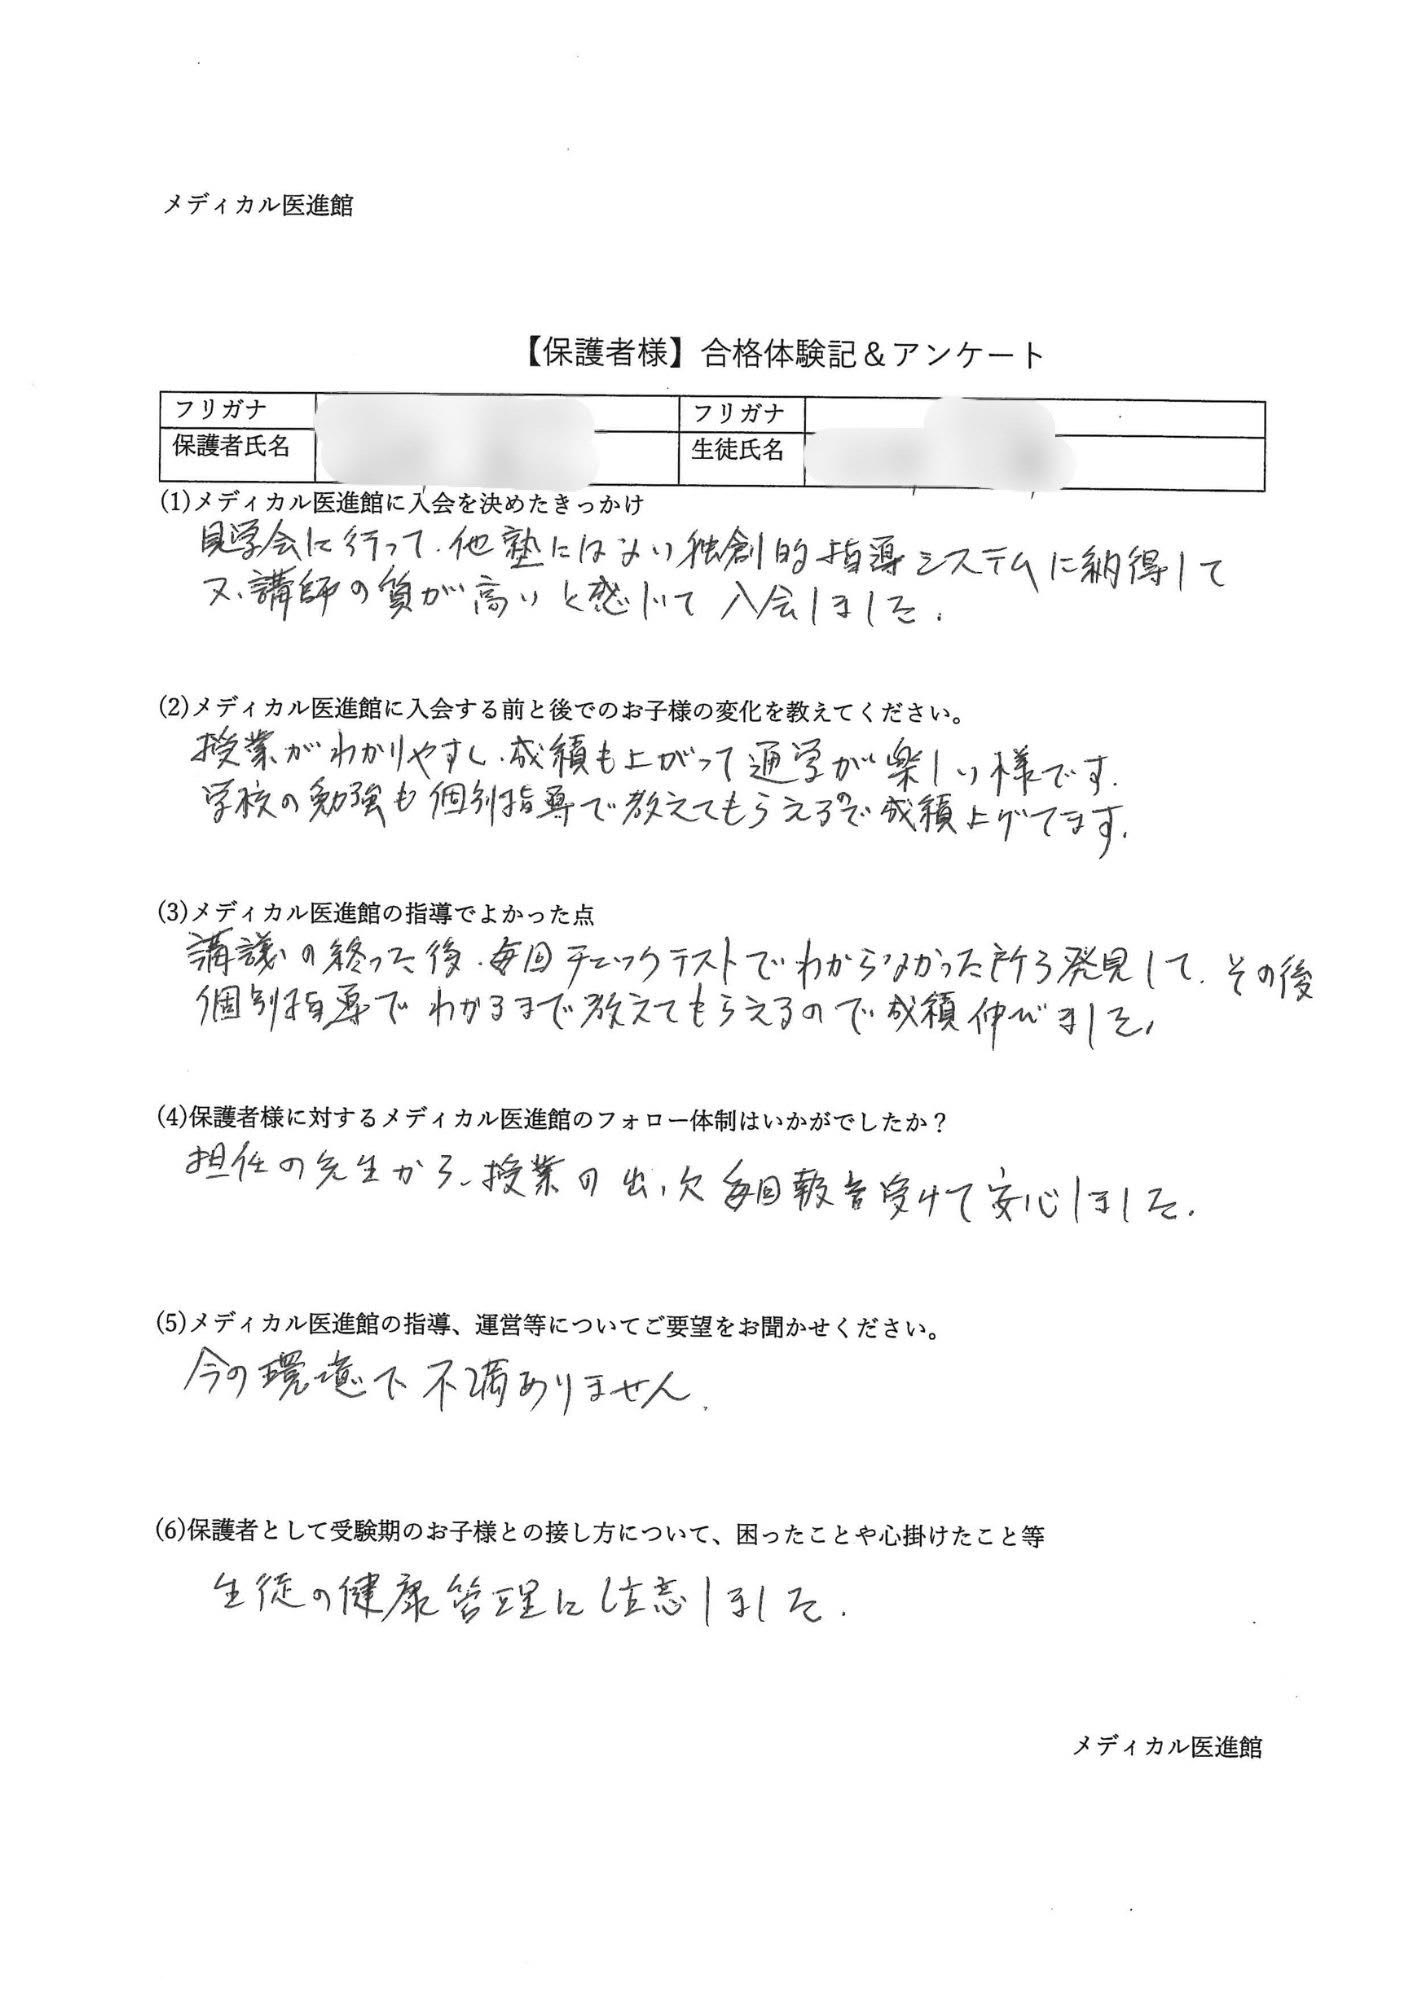 メディカル医進館
【保護者様】合格体験記＆アンケート
フリガナ フリガナ
保護者氏名 生徒氏名
(1)メディカル医進館に入会を決めたきっかけ
見学会に行って、他塾にはない独創的指導システムに納得して
又、講師の質が高いと感じて入会しました。
(2)メディカル医進館に入会する前と後でのお子様の変化を教えてください。
授業がわかりやすく、成績も上がって通学が楽しい様です。
学校の勉強も個別指導で教えてもらえるので成績上げてます。
(3)メディカル医進館の指導でよかった点
講議の終った後、毎回チェックテストでわからなかった所を発見して、その後
個別指導でわかるまで教えてもらえるので成績伸びました。
(4)保護者様に対するメディカル医進館のフォロー体制はいかがでしたか？
担任の先生から、授業の出、欠毎回報告受けて安心しました。
(5)メディカル医進館の指導、運営等についてご要望をお聞かせください。
今の環境で不満ありません。
(6)保護者として受験期のお子様との接し方について、困ったことや心掛けたこと等
生徒の健康管理に注意しました。
メディカル医進館